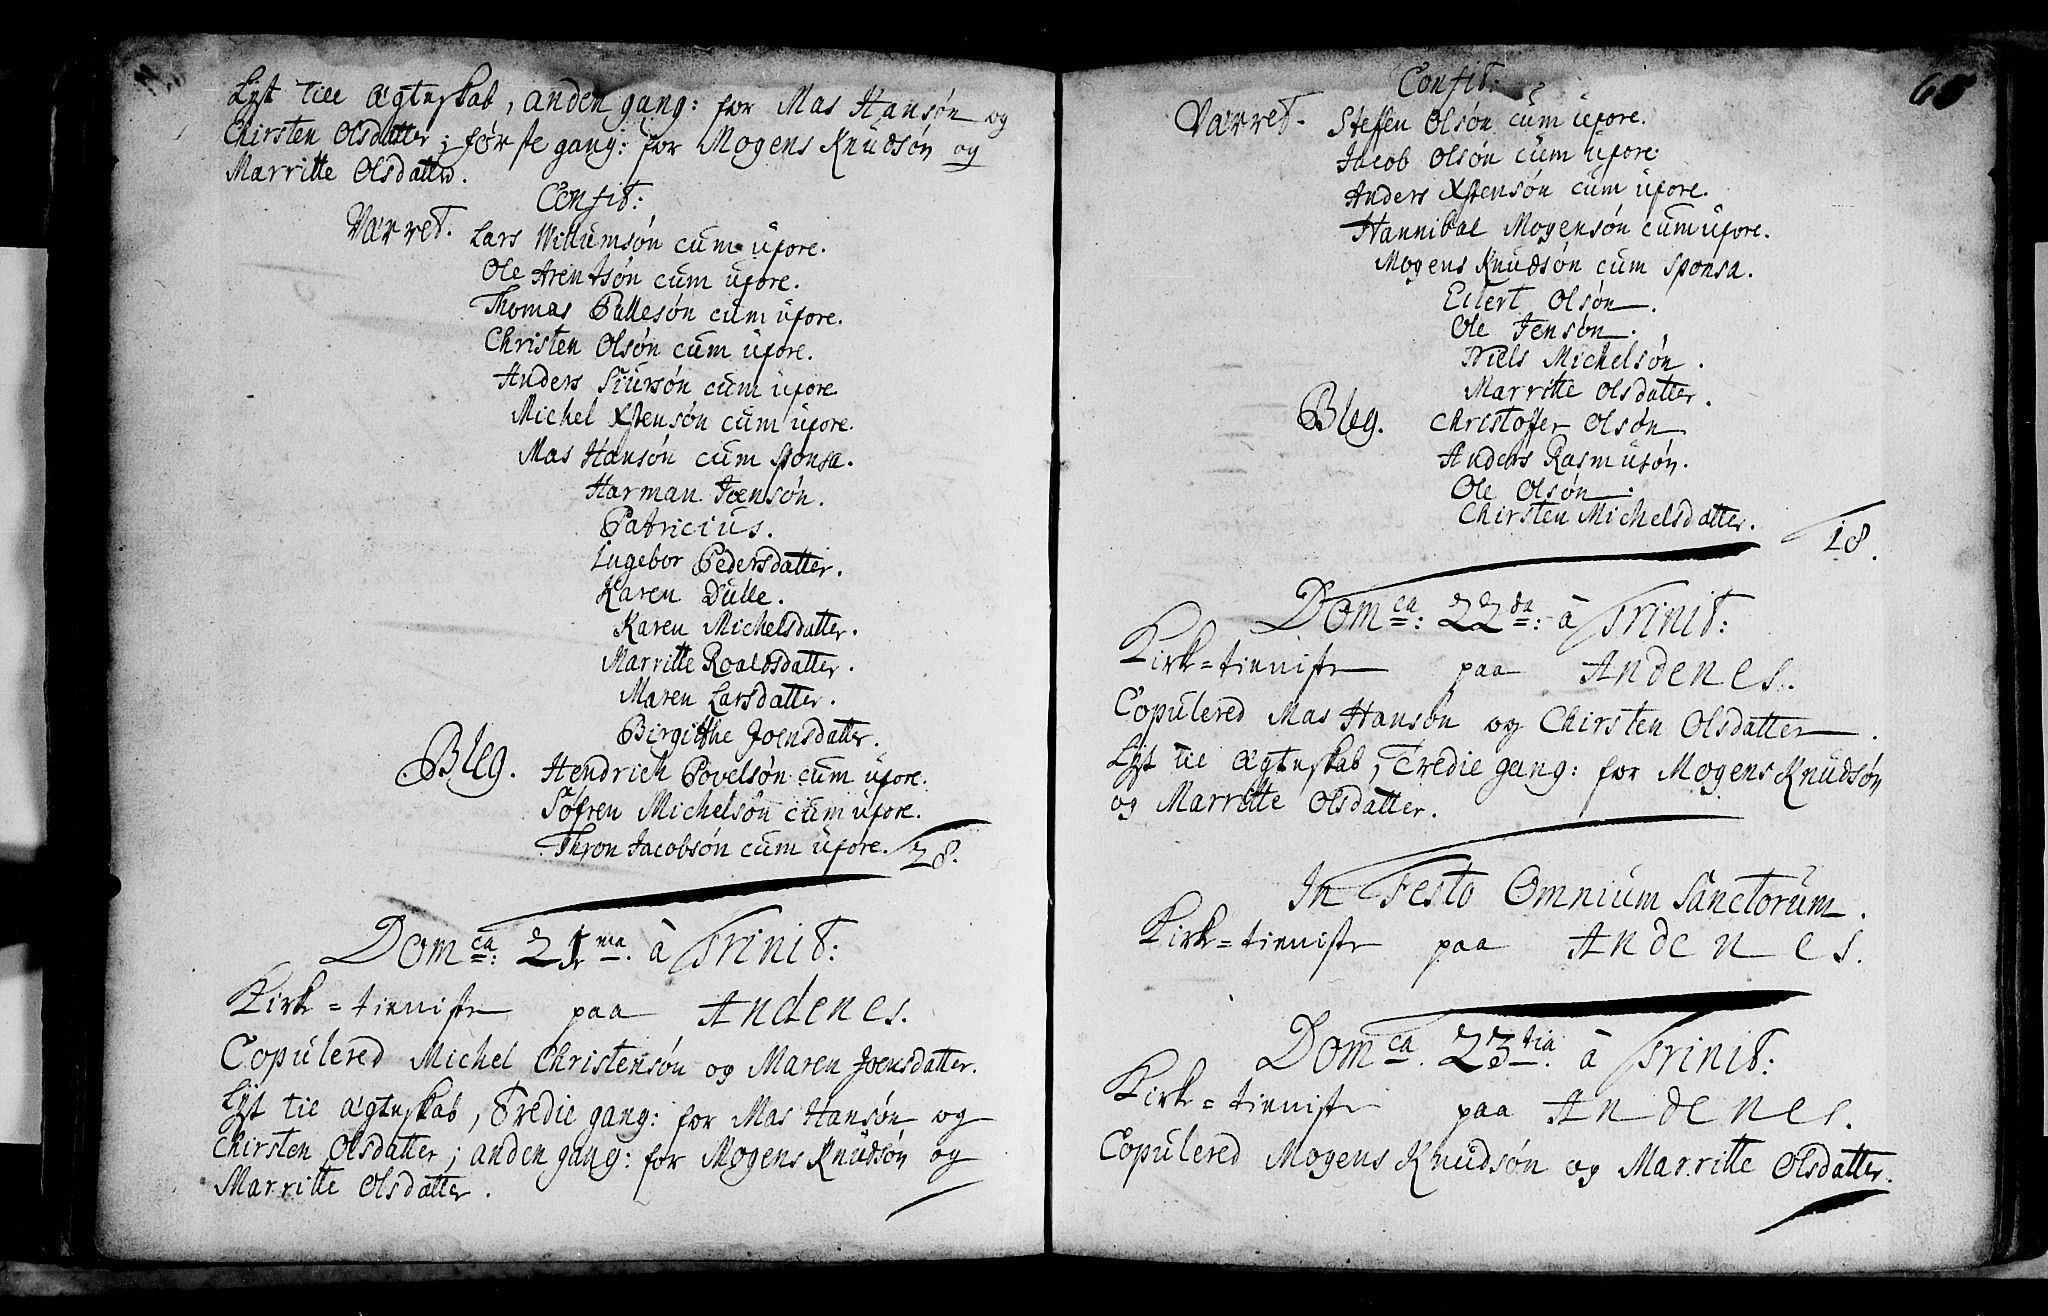 Lyst till Ægteskab, anden gang: for Mas Hansøn og
Chirsten Olsdatter; første gang: for Mogens Knudsøn og
Marritte Olsdatter.
Confit:
Værret. Lars Willumsøn cum uxore.
Ole Arentsøn cum uxore.
Thomas Pallesøn cum uxore.
Christen Olsøn cum uxore.
Anders Siursøn cum uxore.
Michel Xstensøn cum uxore.
Mas Hansøn cum sponsa.
Harman Joensøn.
Patricius.
Ingebor Pedersdatter.
Karen Dulle.
Karen Michelsdatter.
Marritte Roaldsdatter.
Maren Larsdatter.
Birgitthe Joensdatter.
Bleg. Hendrich Povelsøn cum uxore.
Søfren Michelsøn cum uxore.
Thron Jacobsøn cum uxore. 28.
Dom:ca 21ma. à Trinit:
Kirk=tieniste paa Andenes.
Copulered Michel Christensøn og Maren Joensdatter.
Lyst til Ægteskab, Tredie gang: for Mas Hansøn og
Chirsten Olsdatter; anden gang: for Mogens Knudsøn og
Marritte Olsdatter.
Confit:
Værret. Steffen Olsøn cum uxore.
Jacob Olsøn cum uxore.
Anders Xstensøn cum uxore.
Hannibal Mogensøn cum uxore.
Mogens Knudsøn cum sponsa.
Eilert Olsøn.
Ole Jensøn.
Niels Michelsøn.
Marritte Olsdatter.
Bleg. Christoffer Olsøn
Anders Rasmusøn.
Ole Olsøn.
Chirsten Michelsdatter.
18.
Dom:ca 22da: à Trinit:
Kirk=tieniste paa Andenes.
Copulered Mas Hansøn og Chirsten Olsdatter.
Lyst til Ægteskab, Tredie gang: for Mogens Knudsøn
og Marritte Olsdatter.
In Festo Omnium Sanctorum.
Kirk=tieniste paa Andenes.
Dom:ca 23tia. à Trinit:
Kirk=tieniste paa Andenes.
Copulered Mogens Knudsøn og Marritte Olsdatter.